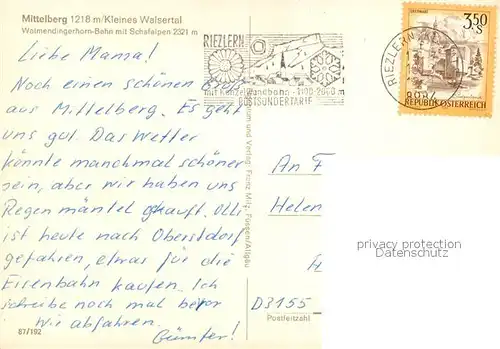 Mittelberg 1218 m/Kleines Walsertal
Walmendingerhorn-Bahn mit Schafalpen 2321 m
Liebe Mama!
Noch einen schönen Gruß
aus Mittelberg. Es geht
uns gut. Das Wetter
könnte manchmal schöner
sein, aber wir haben uns
Regenmäntel gekauft. Olli
ist heute nach Oberstdorf
gefahren, etwas für die
Eisenbahn kaufen. Ich
schreibe noch mal bevor
wir abfahren.
Günter!
87/192
RIEZLERN
mit Kanzelwandbahn - 1100-2000 m
GÄSTSUNDERTARIF
RIEZLERN
8984
3.50
S
REPUBLIK ÖSTERREICH
und Verlag: Franz Milz, Füssen/Allgäu
An F
Helen
D3155
Postleitzahl
privacy protection
Datenschutz